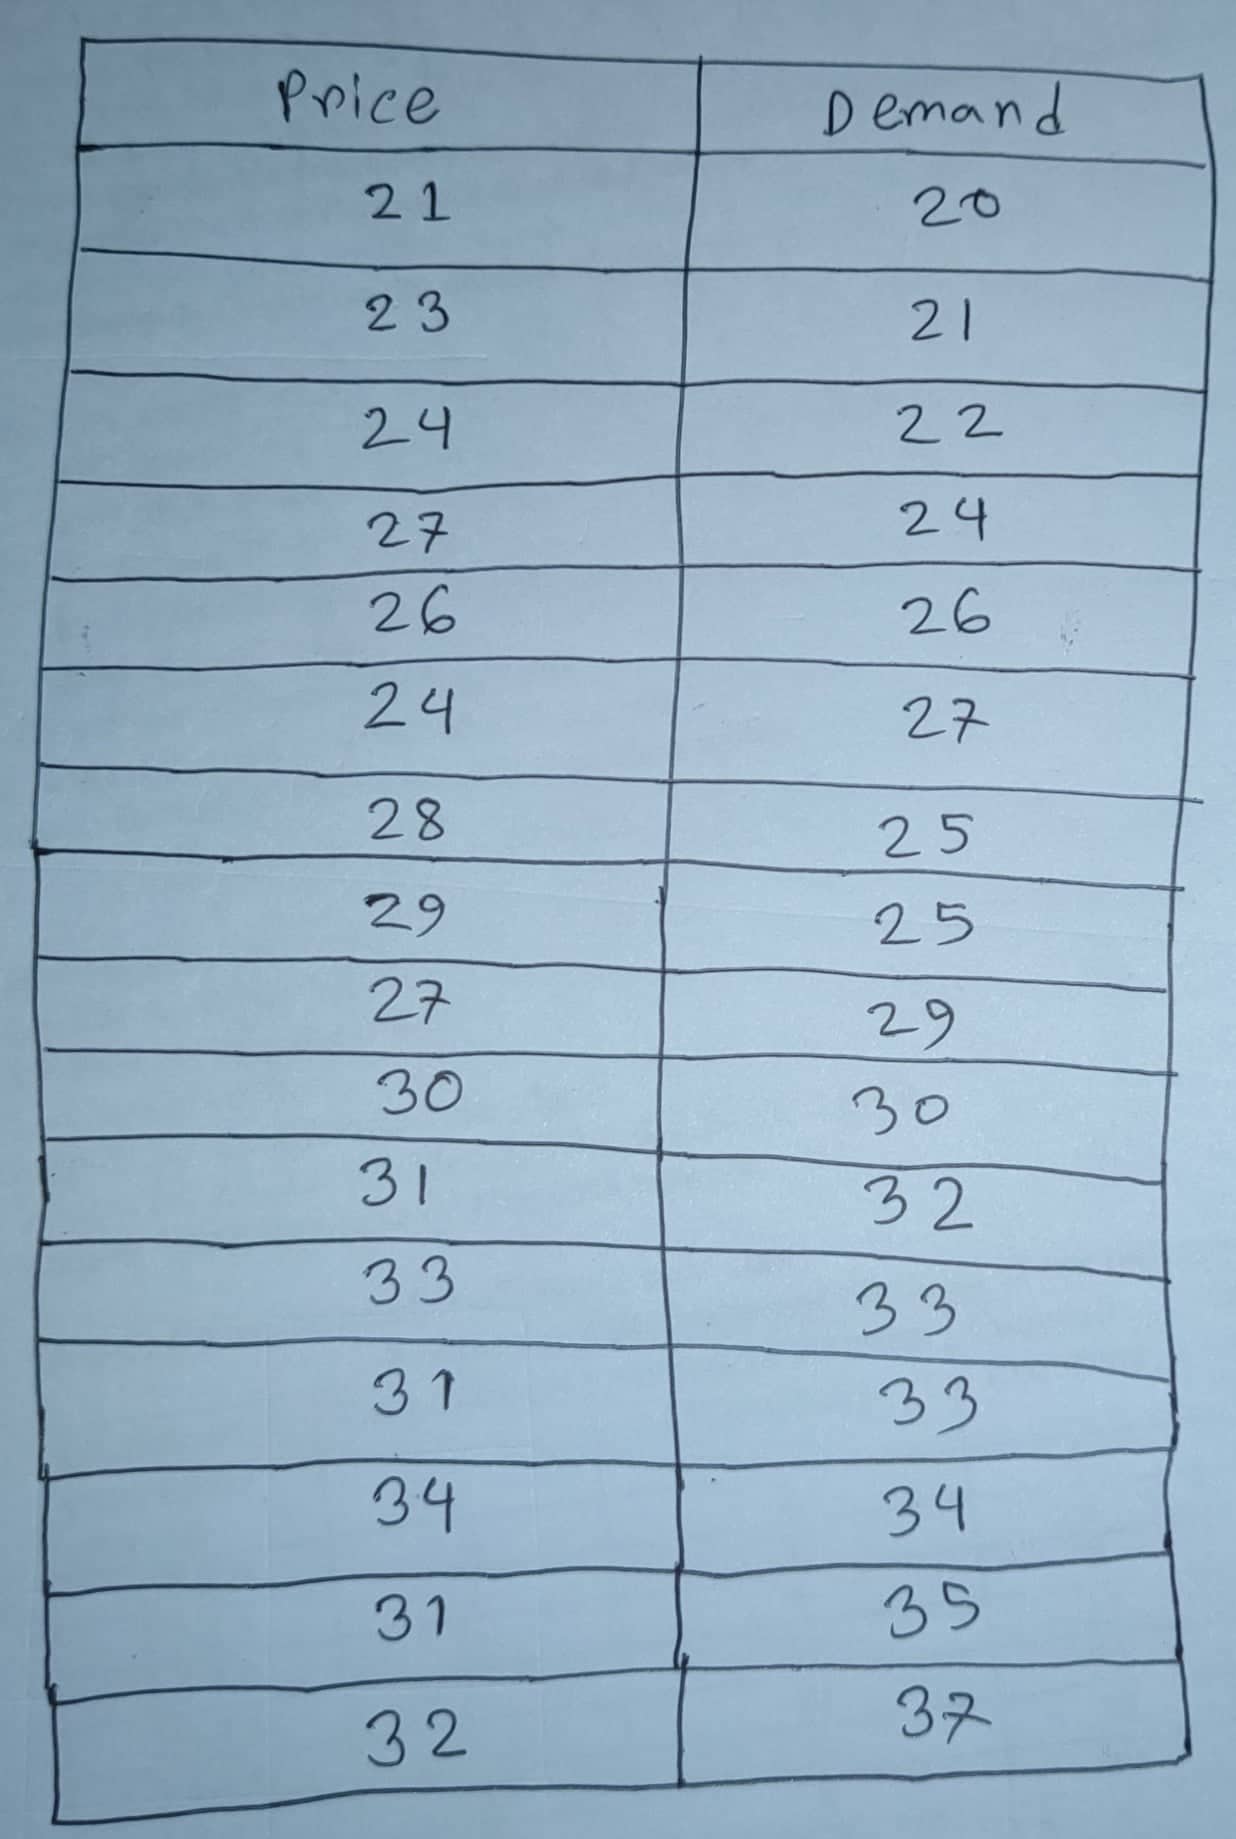 Price Demand
21 20
23 21
24 22
27 24
26 26
24 27
28 25
29 25
27 29
30 30
31 32
33 33
31 33
34 34
31 35
32 37